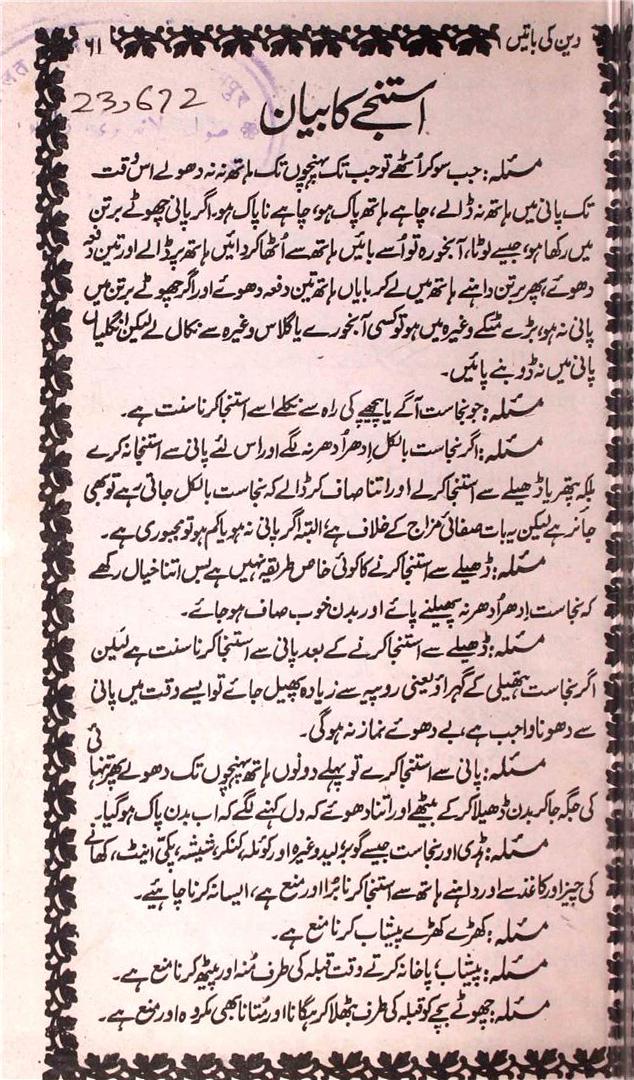 دین کی باتیں
۶۱
23,672
استنجے کا بیان
مسئلہ: جب سوکر اُٹھے تو جب تک پہنچوں تک ہاتھ نہ نہ دھولے اس وقت
تک پانی میں ہاتھ نہ ڈالے، چاہے ہاتھ پاک ہو، چاہے ناپاک ہو۔ اگر پانی چھوٹے برتن
میں رکھا ہو، جیسے لوٹا، آبخورہ تو اُسے بائیں ہاتھ سے اُٹھا کر دائیں ہاتھ پر ڈالے اور تین دفعہ
دھوئے، پھر برتن داہنے ہاتھ میں لے کر بایاں ہاتھ تین دفعہ دھوئے اور اگر چھوٹے برتن میں
پانی نہ ہو، بڑے مٹکے وغیرہ میں ہو تو کسی آبخورے یا گلاس وغیرہ سے نکال لے لیکن انگلیاں
پانی میں نہ ڈوبنے پائیں۔
مسئلہ: جو نجاست آگے یا پیچھے کی راہ سے نکلے اسے استنجا کرنا سنت ہے۔
مسئلہ: اگر نجاست بالکل اِدھر اُدھر نہ لگے اور اس لئے پانی سے استنجا نہ کرے
بلکہ پتھر یا ڈھیلے سے استنجا کرلے اور اتنا صاف کر ڈالے کہ نجاست بالکل جاتی رہے تو بھی
جائز ہے لیکن یہ بات صفائی مزاج کے خلاف ہے، البتہ اگر پانی نہ ہو یا کم ہو تو مجبوری ہے۔
مسئلہ: ڈھیلے سے استنجا کرنے کا کوئی خاص طریقہ نہیں ہے بس اتنا خیال رکھے
کہ نجاست اِدھر اُدھر نہ پھیلنے پائے اور بدن خوب صاف ہو جائے۔
مسئلہ: ڈھیلے سے استنجا کرنے کے بعد پانی سے استنجا کرنا سنت ہے لیکن
اگر نجاست ہتھیلی کے گہراؤ یعنی روپیہ سے زیادہ پھیل جائے تو ایسے وقت میں پانی
سے دھونا واجب ہے، بے دھوئے نماز نہ ہوگی۔
مسئلہ: پانی سے استنجا کرے تو پہلے دونوں ہاتھ پہنچوں تک دھولے پھر تنہائی
کی جگہ جا کر بدن ڈھیلا کرکے بیٹھے اور اتنا دھوئے کہ دل کہنے لگے کہ اب بدن پاک ہوگیا۔
مسئلہ: ہڈی اور نجاست جیسے گوبر، لید وغیرہ اور کوئلہ، کنکر، شیشہ، پکی اینٹ، کھانے
کی چیز اور کاغذ سے اور داہنے ہاتھ سے استنجا کرنا بُرا اور منع ہے، ایسا نہ کرنا چاہیے۔
مسئلہ: کھڑے کھڑے پیشاب کرنا منع ہے۔
مسئلہ: پیشاب، پاخانہ کرتے وقت قبلہ کی طرف مُنہ اور پیٹھ کرنا منع ہے۔
مسئلہ: چھوٹے بچے کو قبلہ کی طرف بٹھلا کر ہگانا اور مُتانا بھی مکروہ اور منع ہے۔